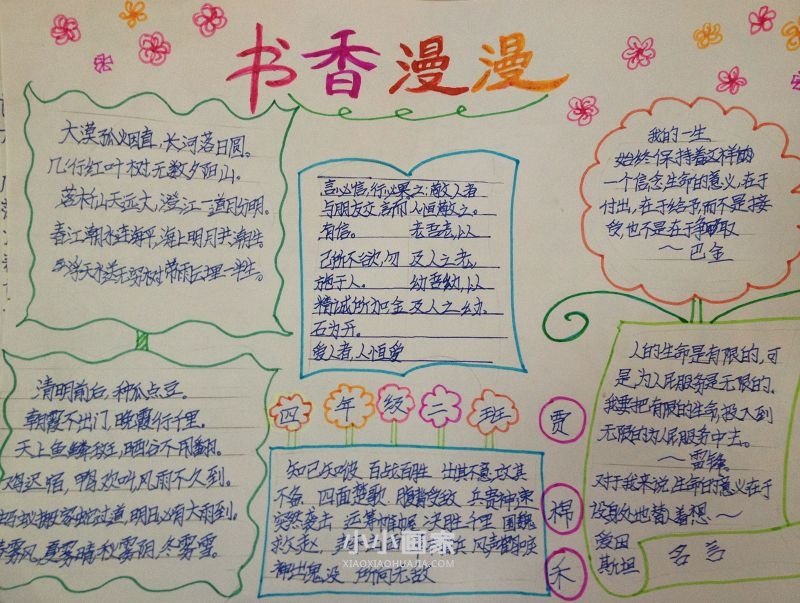 书香漫漫
大漠孤烟直，长河落日圆。
几行红叶树，无数夕阳山。
落木千山天远大，澄江一道月分明。
春江潮水连海平，海上明月共潮生
带雨云埋一半山。
言必信，行必果。
与朋友交言而
有信。
己所不欲，勿
施于人。
精诚所加金
石为开。
爱人者，人恒爱
之；敬人者
人恒敬之。
老吾老，以
及人之老，
幼吾幼，以
及人之幼。
我的一生
始终保持着这样的
一个信念生命的意义，在于
付出，在于给予，而不是接
受，也不是在于争取
～巴金
清明前后，种瓜点豆。
朝霞不出门，晚霞行千里。
天上鱼鳞斑，晒谷不用翻。
鸡迟宿，鸭欢叫风雨不久到。
搬家蛇过道，明日必有大雨到。
雾风，夏雾晴，秋雾阴，冬雾雪。
四年级二班
贾棉禾
知己知彼 百战百胜 出其不意 攻其
不备 四面楚歌 腹背受敌 兵贵神速
突然袭击 运筹帷幄 决胜千里 围魏
救赵 风声鹤唳
神出鬼没 所向无敌
人的生命是有限的，可
是，为人民服务是无限的，
我要把有限的生命，投入到
无限的为人民服务中去。
～雷锋
对于我来说，生命的意义在于
设身处地替着想～
爱因
斯坦
名言
小小画家
XIAOXIAOHUAJIA.COM